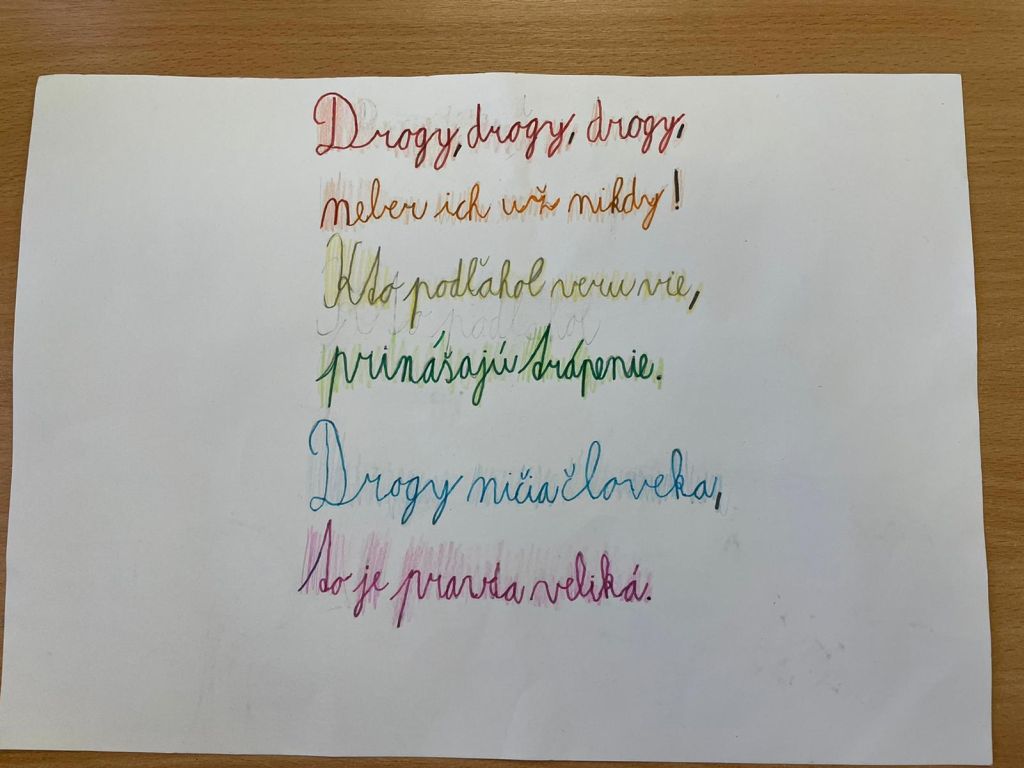 Drogy, drogy, drogy,
neber ich už nikdy!
Kto podľahol veru vie,
prinášajú trápenie.
Drogy ničia človeka,
to je pravda veliká.